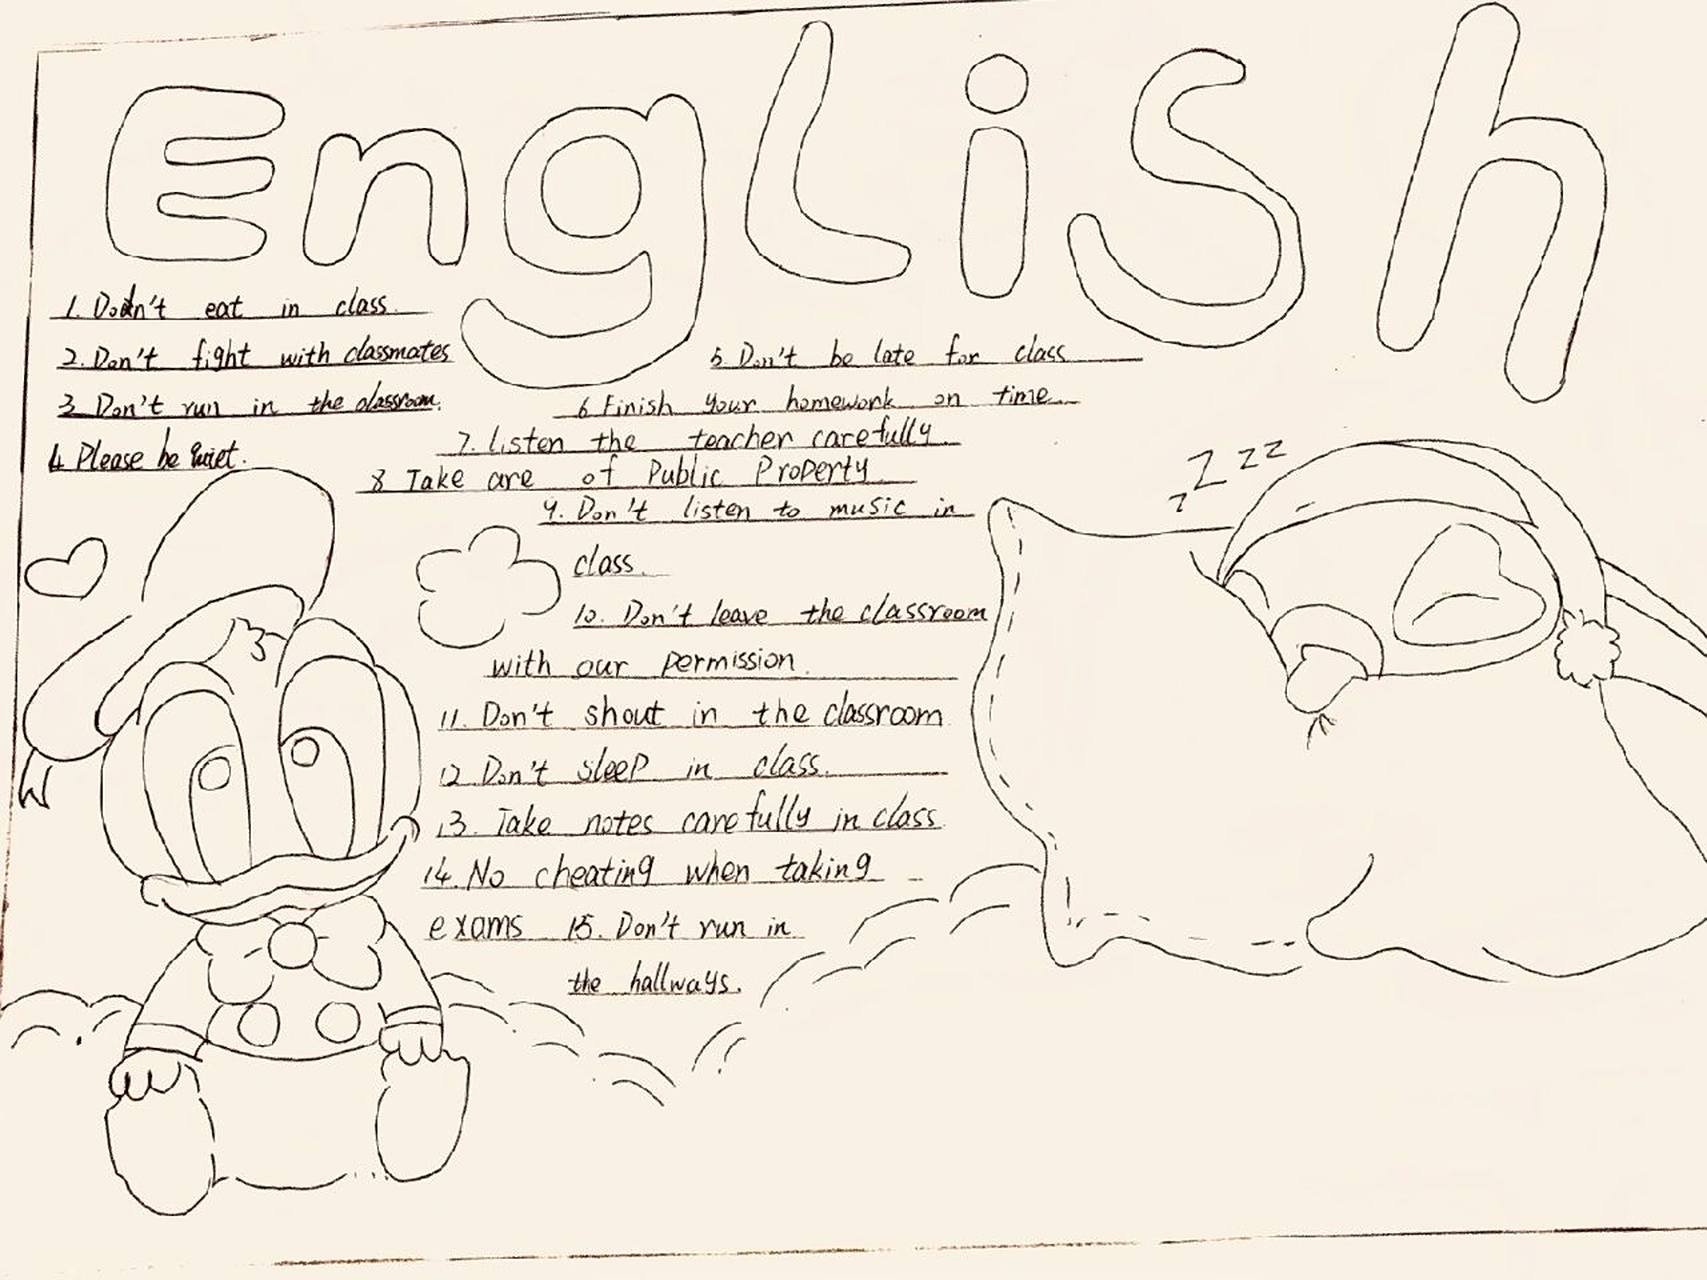 EngLiSh
1. Don't eat in class.
2. Don't fight with classmates
3 Don't run in the classroom.
4 Please be Quiet.
5 Don't be late for class
6 Finish your homework on time
7. listen the teacher carefully.
8 Take are of Public Property.
9. Don't listen to music in
class.
10. Don't leave the classroom
with our permission.
11. Don't shout in the classroom
12 Don't sleep in class.
13. Take notes carefully in class
14. No cheating when taking
exams 15. Don't run in
the hallways.
z Z z z